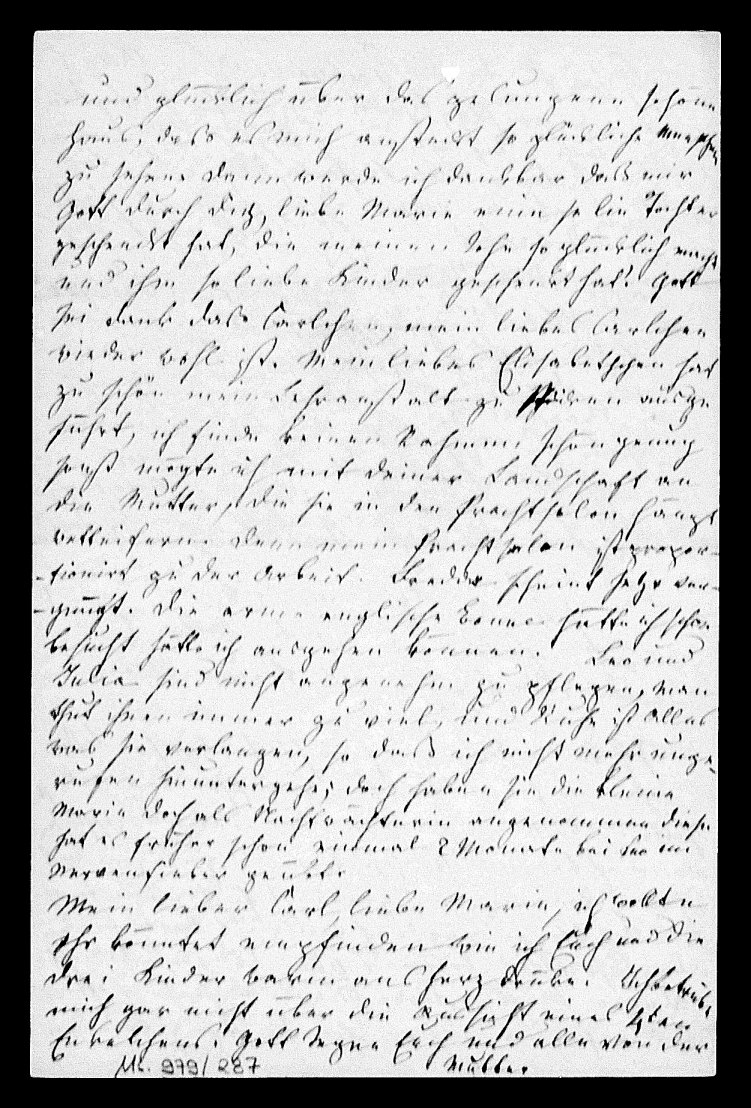 und glücklich über das gelungene schöne
Haus, dass es mich ansteckt so glückliche Menschen
zu sehen. Dann werde ich dankbar dass mir
Gott durch Dich, liebe Marie eine so liebe Tochter
geschenkt hat, die meinen Sohn so glücklich macht
und ihm so liebe Kinder geschenkt hat. Gott
sei Dank dass Carlchen, mein liebes Carlchen
wieder wohl ist. Mein liebes Elisabethchen hat
zu schön mein Lehranstalt zu ausge
führt, ich finde keinen Rahmen schön genug
sonst mögte ich mit deiner Landschaft an
die Mutter, die sie in den Prachtsalon hängt
wetteifern. Denn mein Prachtsalon ist propor-
-tionirt zu der Arbeit. scheint sehr ver-
-gnügt. Die arme englische Bonne hätte ich schon
besucht hätte ich ausgehen können. Leo und
Julia sind nicht angenehm zu pflegen, man
thut ihnen immer zu viel, und Ruhe ist alles
was sie verlangen, so dass ich nicht mehr unge-
rufen hinuntergehe; doch haben sie die kleine
Marie doch als Nachtwächterin angenommen diese
hat es früher schon einmal 2 Monate bei Leo im
Nervenfieber geübt.
Mein lieber Carl, liebe Marie, ich wollte
Ihr könntet empfinden wie ich Euch und die
drei Kinder warm ans Herz drücke. Ich betrübe
mich gar nicht über die Aussicht eines 4ten
Enkelchens. Gott segne Euch und alle von der
Mutter
979/287